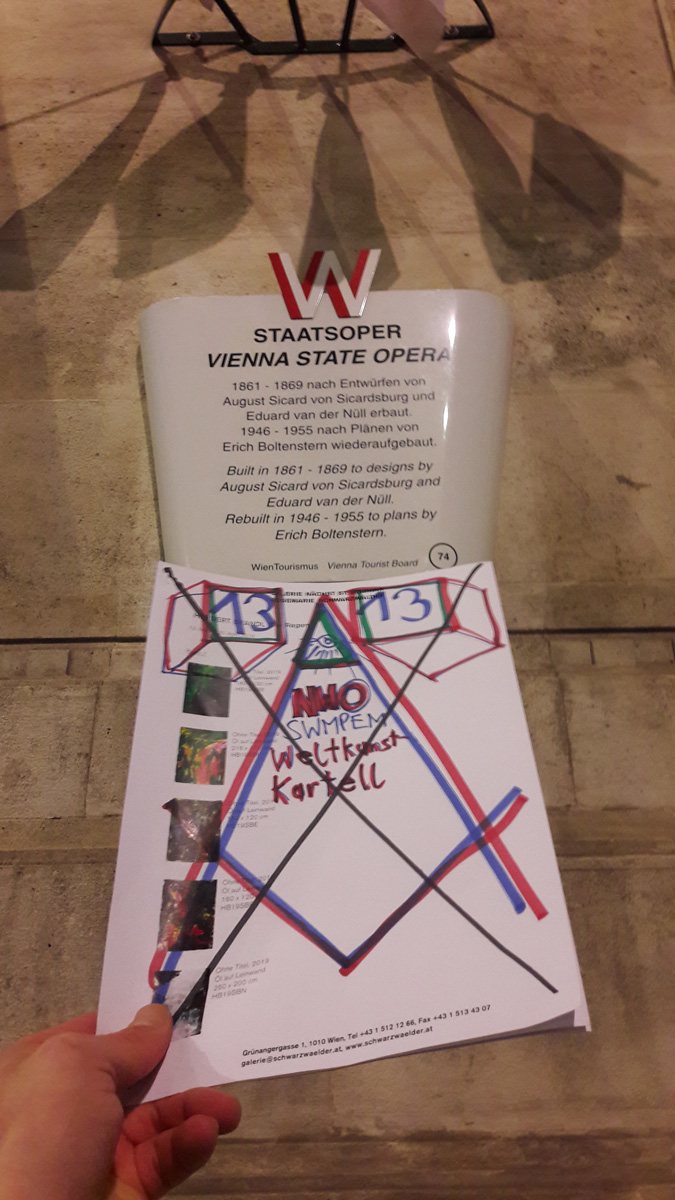 W
STAATSOPER
VIENNA STATE OPERA
1861 - 1869 nach Entwürfen von
August Sicard von Sicardsburg und
Eduard van der Nüll erbaut.
1946 - 1955 nach Plänen von
Erich Boltenstern wiederaufgebaut.
Built in 1861 - 1869 to designs by
August Sicard von Sicardsburg and
Eduard van der Nüll.
Rebuilt in 1946 - 1955 to plans by
Erich Boltenstern.
WienTourismus Vienna Tourist Board 74
13 13
NWO
SWMPEM
Weltkunst
Kartell
Ohne Titel, 2019
Öl auf Leinwand
260 x 200 cm
HB19SBN
Grünangergasse 1, 1010 Wien, Tel +43 1 512 12 66, Fax +43 1 513 43 07
galerie@schwarzwaelder.at, www.schwarzwaelder.at